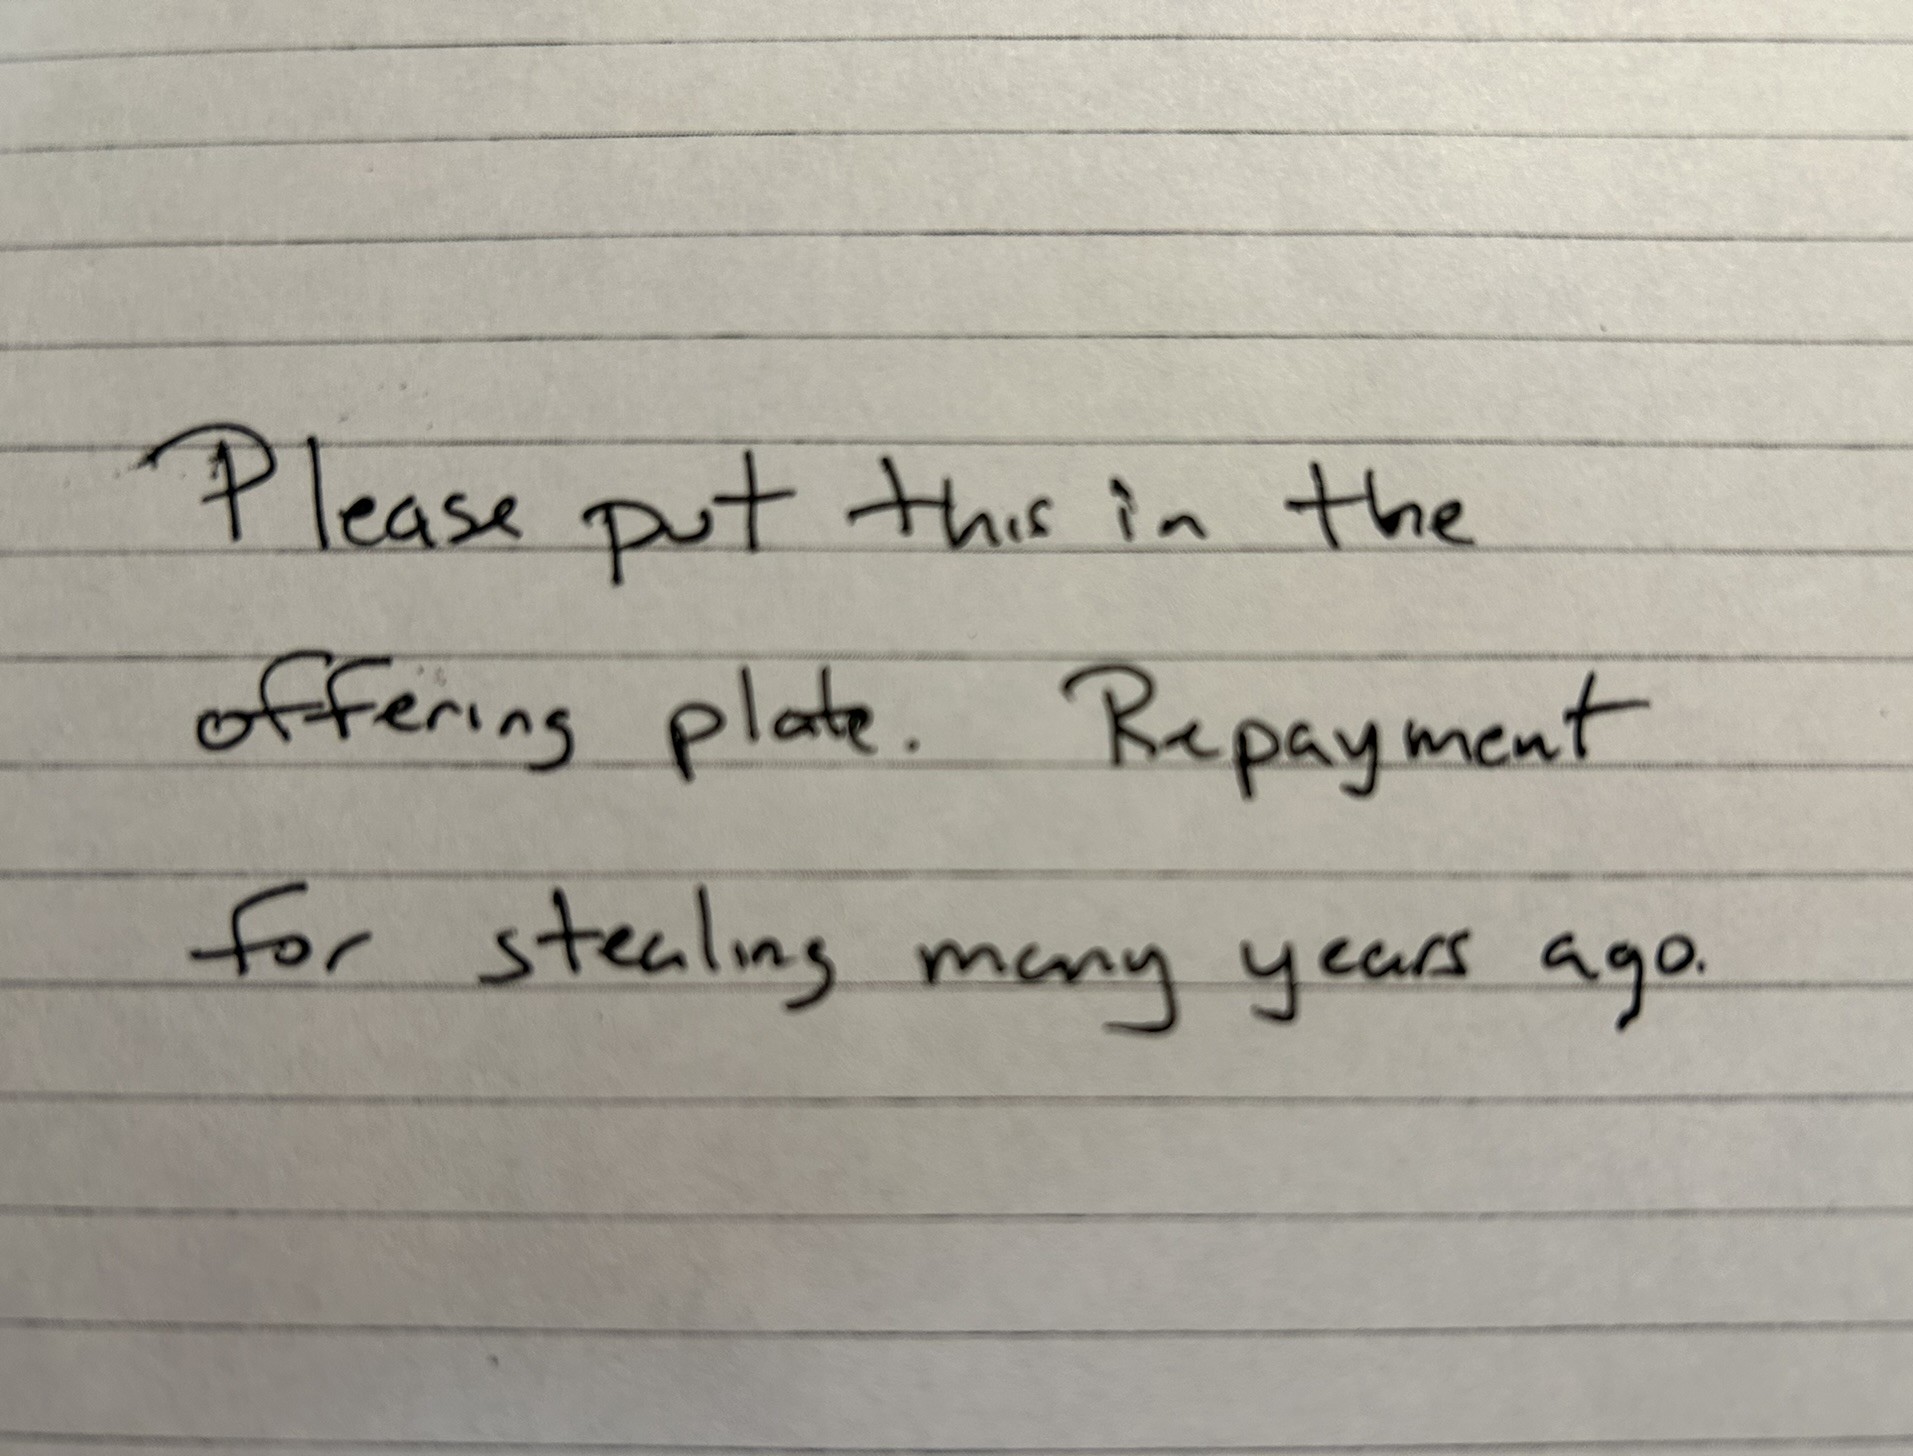 Please put this in the
offering plate. Repayment
for stealing many years ago.